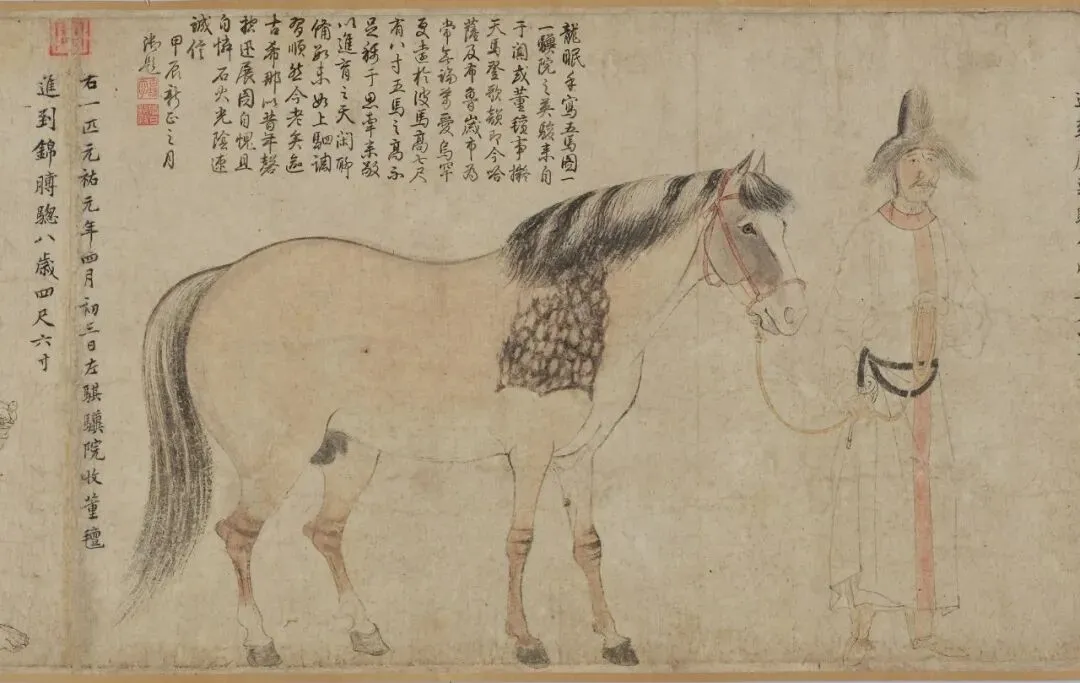 龍眠手寫五馬圖一
一驥院之英駿來自
于闐或董氊事擬
天馬登歌頖即今哈
薩及布魯歲市為
常無論萬愛烏罕
更遠於彼馬高七尺
有八寸五馬之高不
足稱于思牽來敬
以進育之天閑聊
備數未如上駟調
習順然今老矣邁
古希那以昔年磬
控迅展圖自愧且
自憐石火光陰速
誠信
甲辰新正之月
御題
右一匹元祐元年四月初三日左騏驥院收董氊
進到錦膊驄八歲四尺六寸